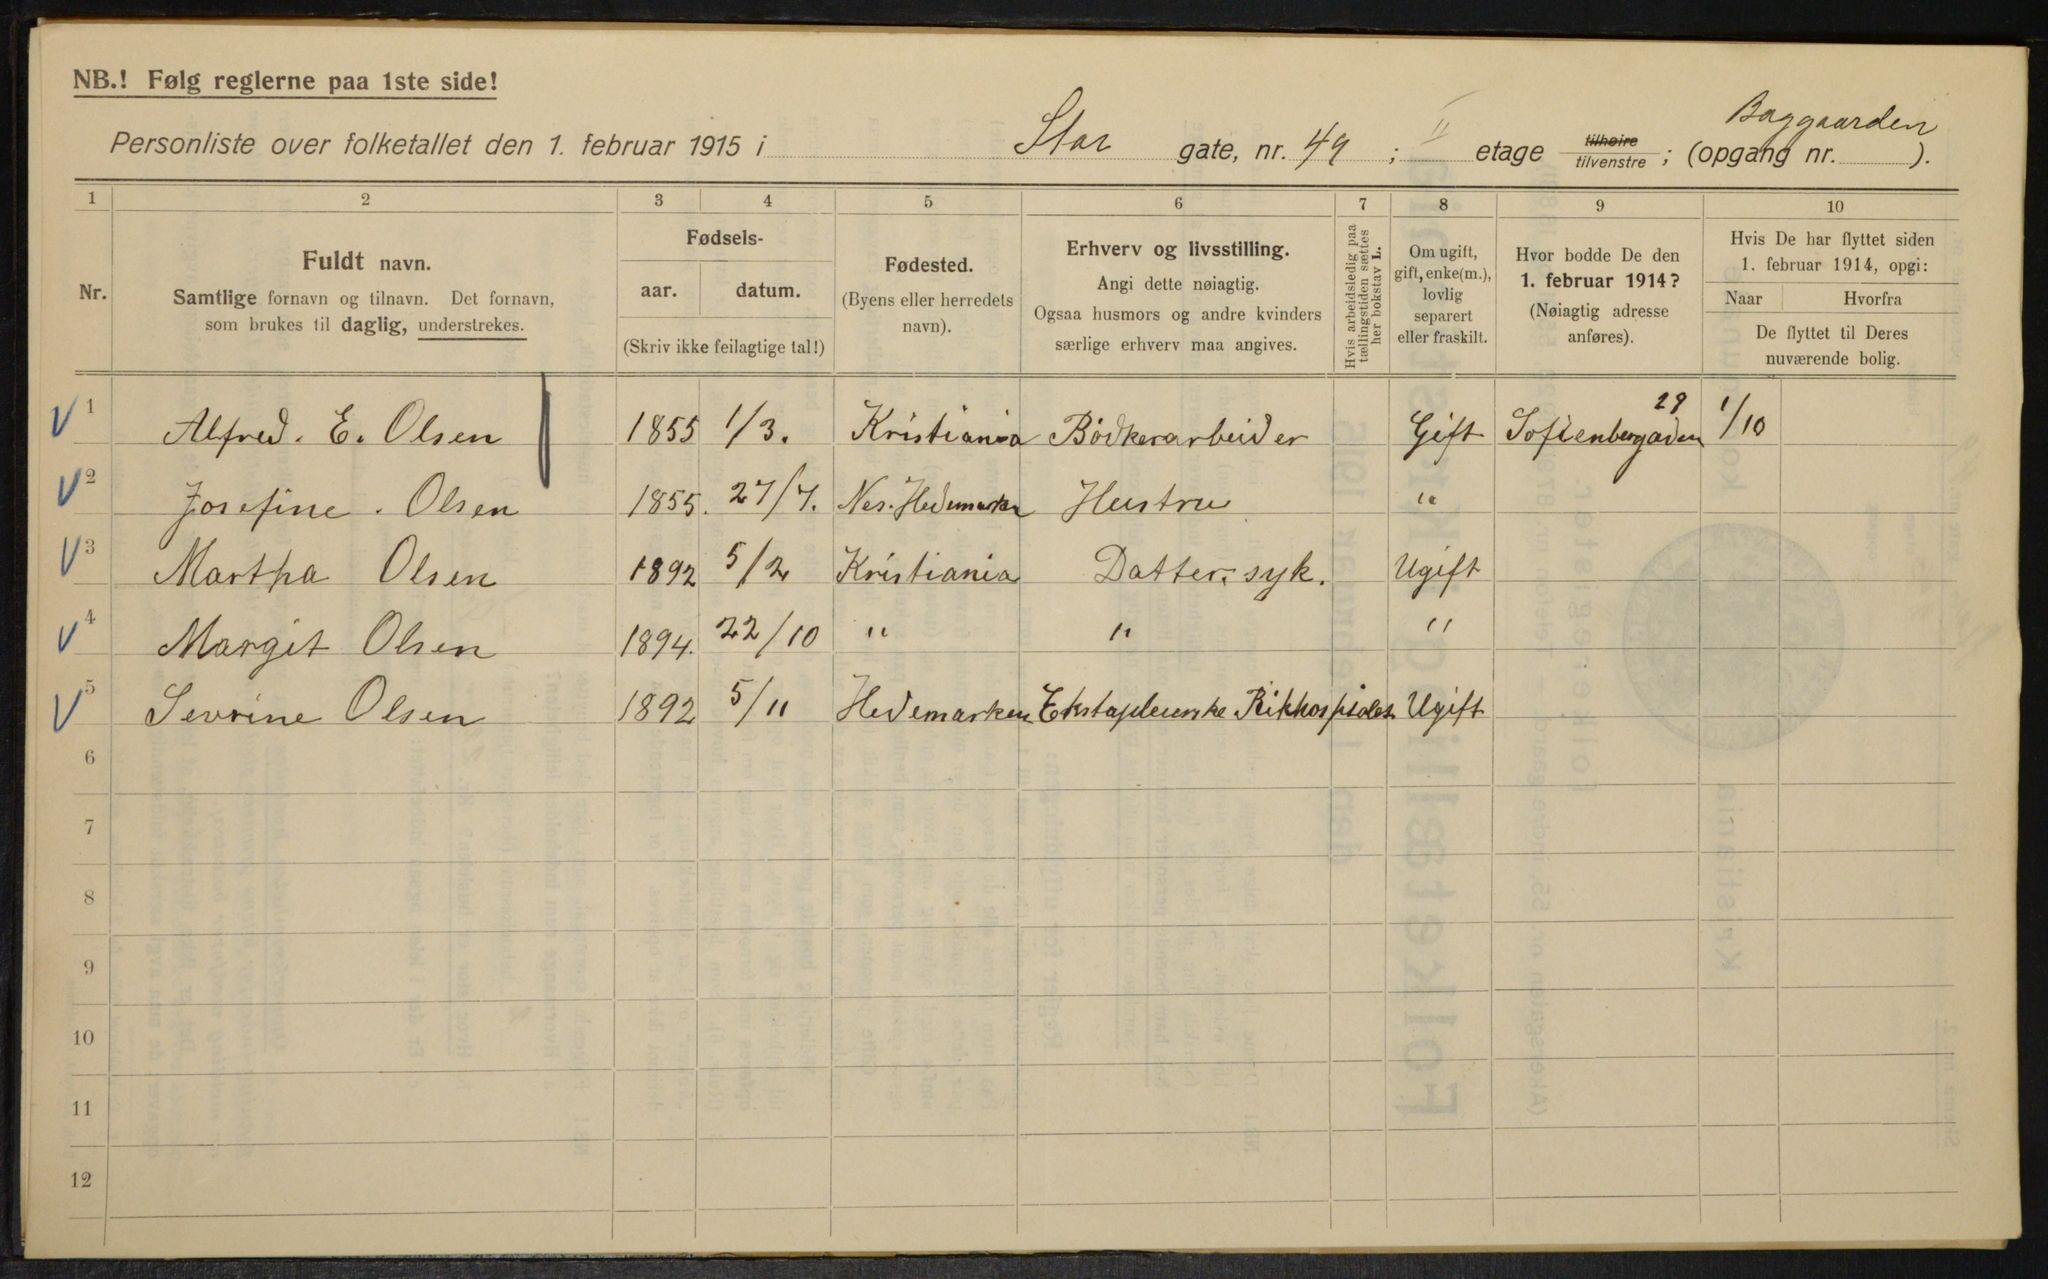 NB.! Følg reglerne paa 1ste side!
Baggaarden
Personliste over folketallet den 1. februar 1915 i Stor gate, nr. 49 ; II etage tilhøire tilvenstre ; (opgang nr. ).
1 2 3 4 5 6 7 8 9 10
Nr.
Fuldt navn.
Samtlige fornavn og tilnavn. Det fornavn,
som brukes til daglig, understrekes.
Fødsels-
aar. datum.
(Skriv ikke feilagtige tal!)
Fødested.
(Byens eller herredets
navn).
Erhverv og livsstilling.
Angi dette nøiagtig.
Ogsaa husmors og andre kvinders
særlige erhverv maa angives.
Hvis arbeidsledig paa
tællingstiden sættes
her bokstav L.
Om ugift,
gift, enke(m.),
lovlig
separert
eller fraskilt.
Hvor bodde De den
1. februar 1914?
(Nøiagtig adresse
anføres).
Hvis De har flyttet siden
1. februar 1914, opgi:
Naar Hvorfra
De flyttet til Deres
nuværende bolig.
1 Alfred. E. Olsen 1855 1/3. Kristiania Bödkerarbeider Gift Sofienbergaden 29 1/10
2 Josefine. Olsen 1855. 27/7. Nes. Hedemarken Hustru "
3 Martha Olsen 1892 5/2 Kristiania Datter. syk. Ugift
4 Margit Olsen 1894. 22/10 " " "
5 Sevrine Olsen 1892 5/11 Hedemarken Rikhospidalet Ugift
6
7
8
9
10
11
12